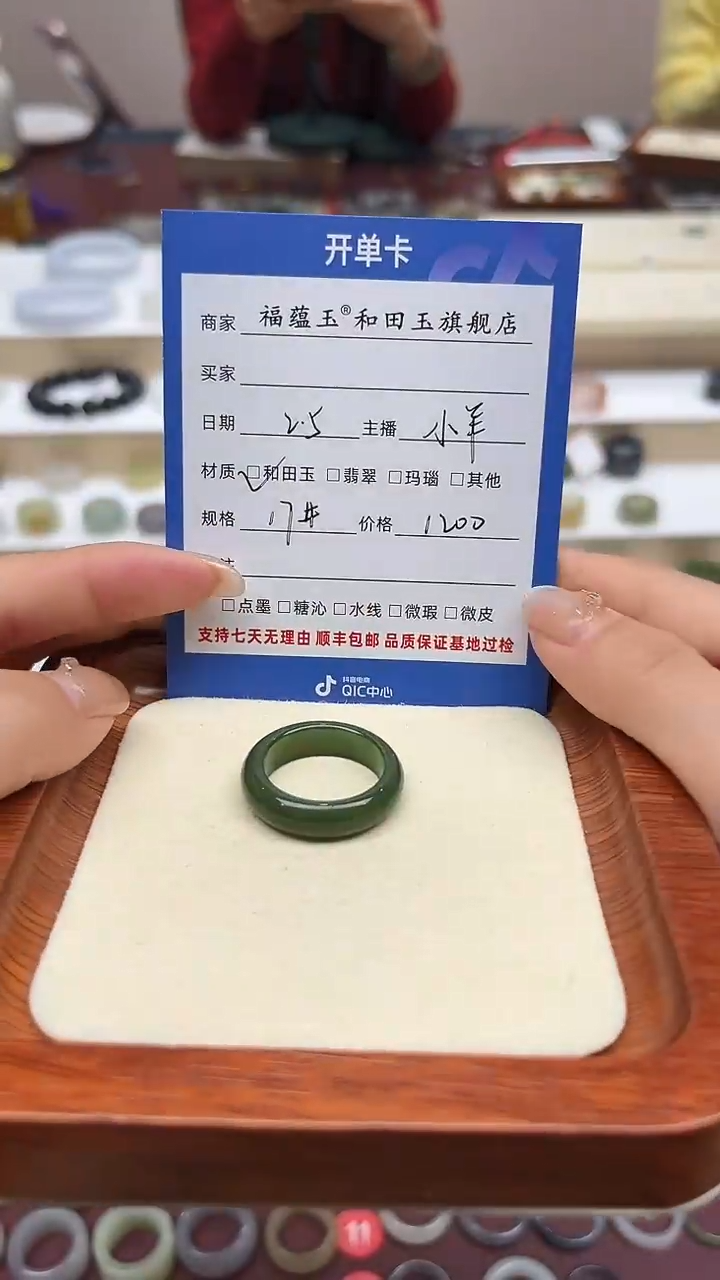 开单卡
商家 福蕴玉®和田玉旗舰店
买家
日期 2.5 主播 小羊
材质 ☑和田玉 □翡翠 □玛瑙 □其他
规格 17# 价格 1200
□点墨 □糖沁 □水线 □微瑕 □微皮
支持七天无理由 顺丰包邮 品质保证基地过检
抖音电商
QIC中心
11